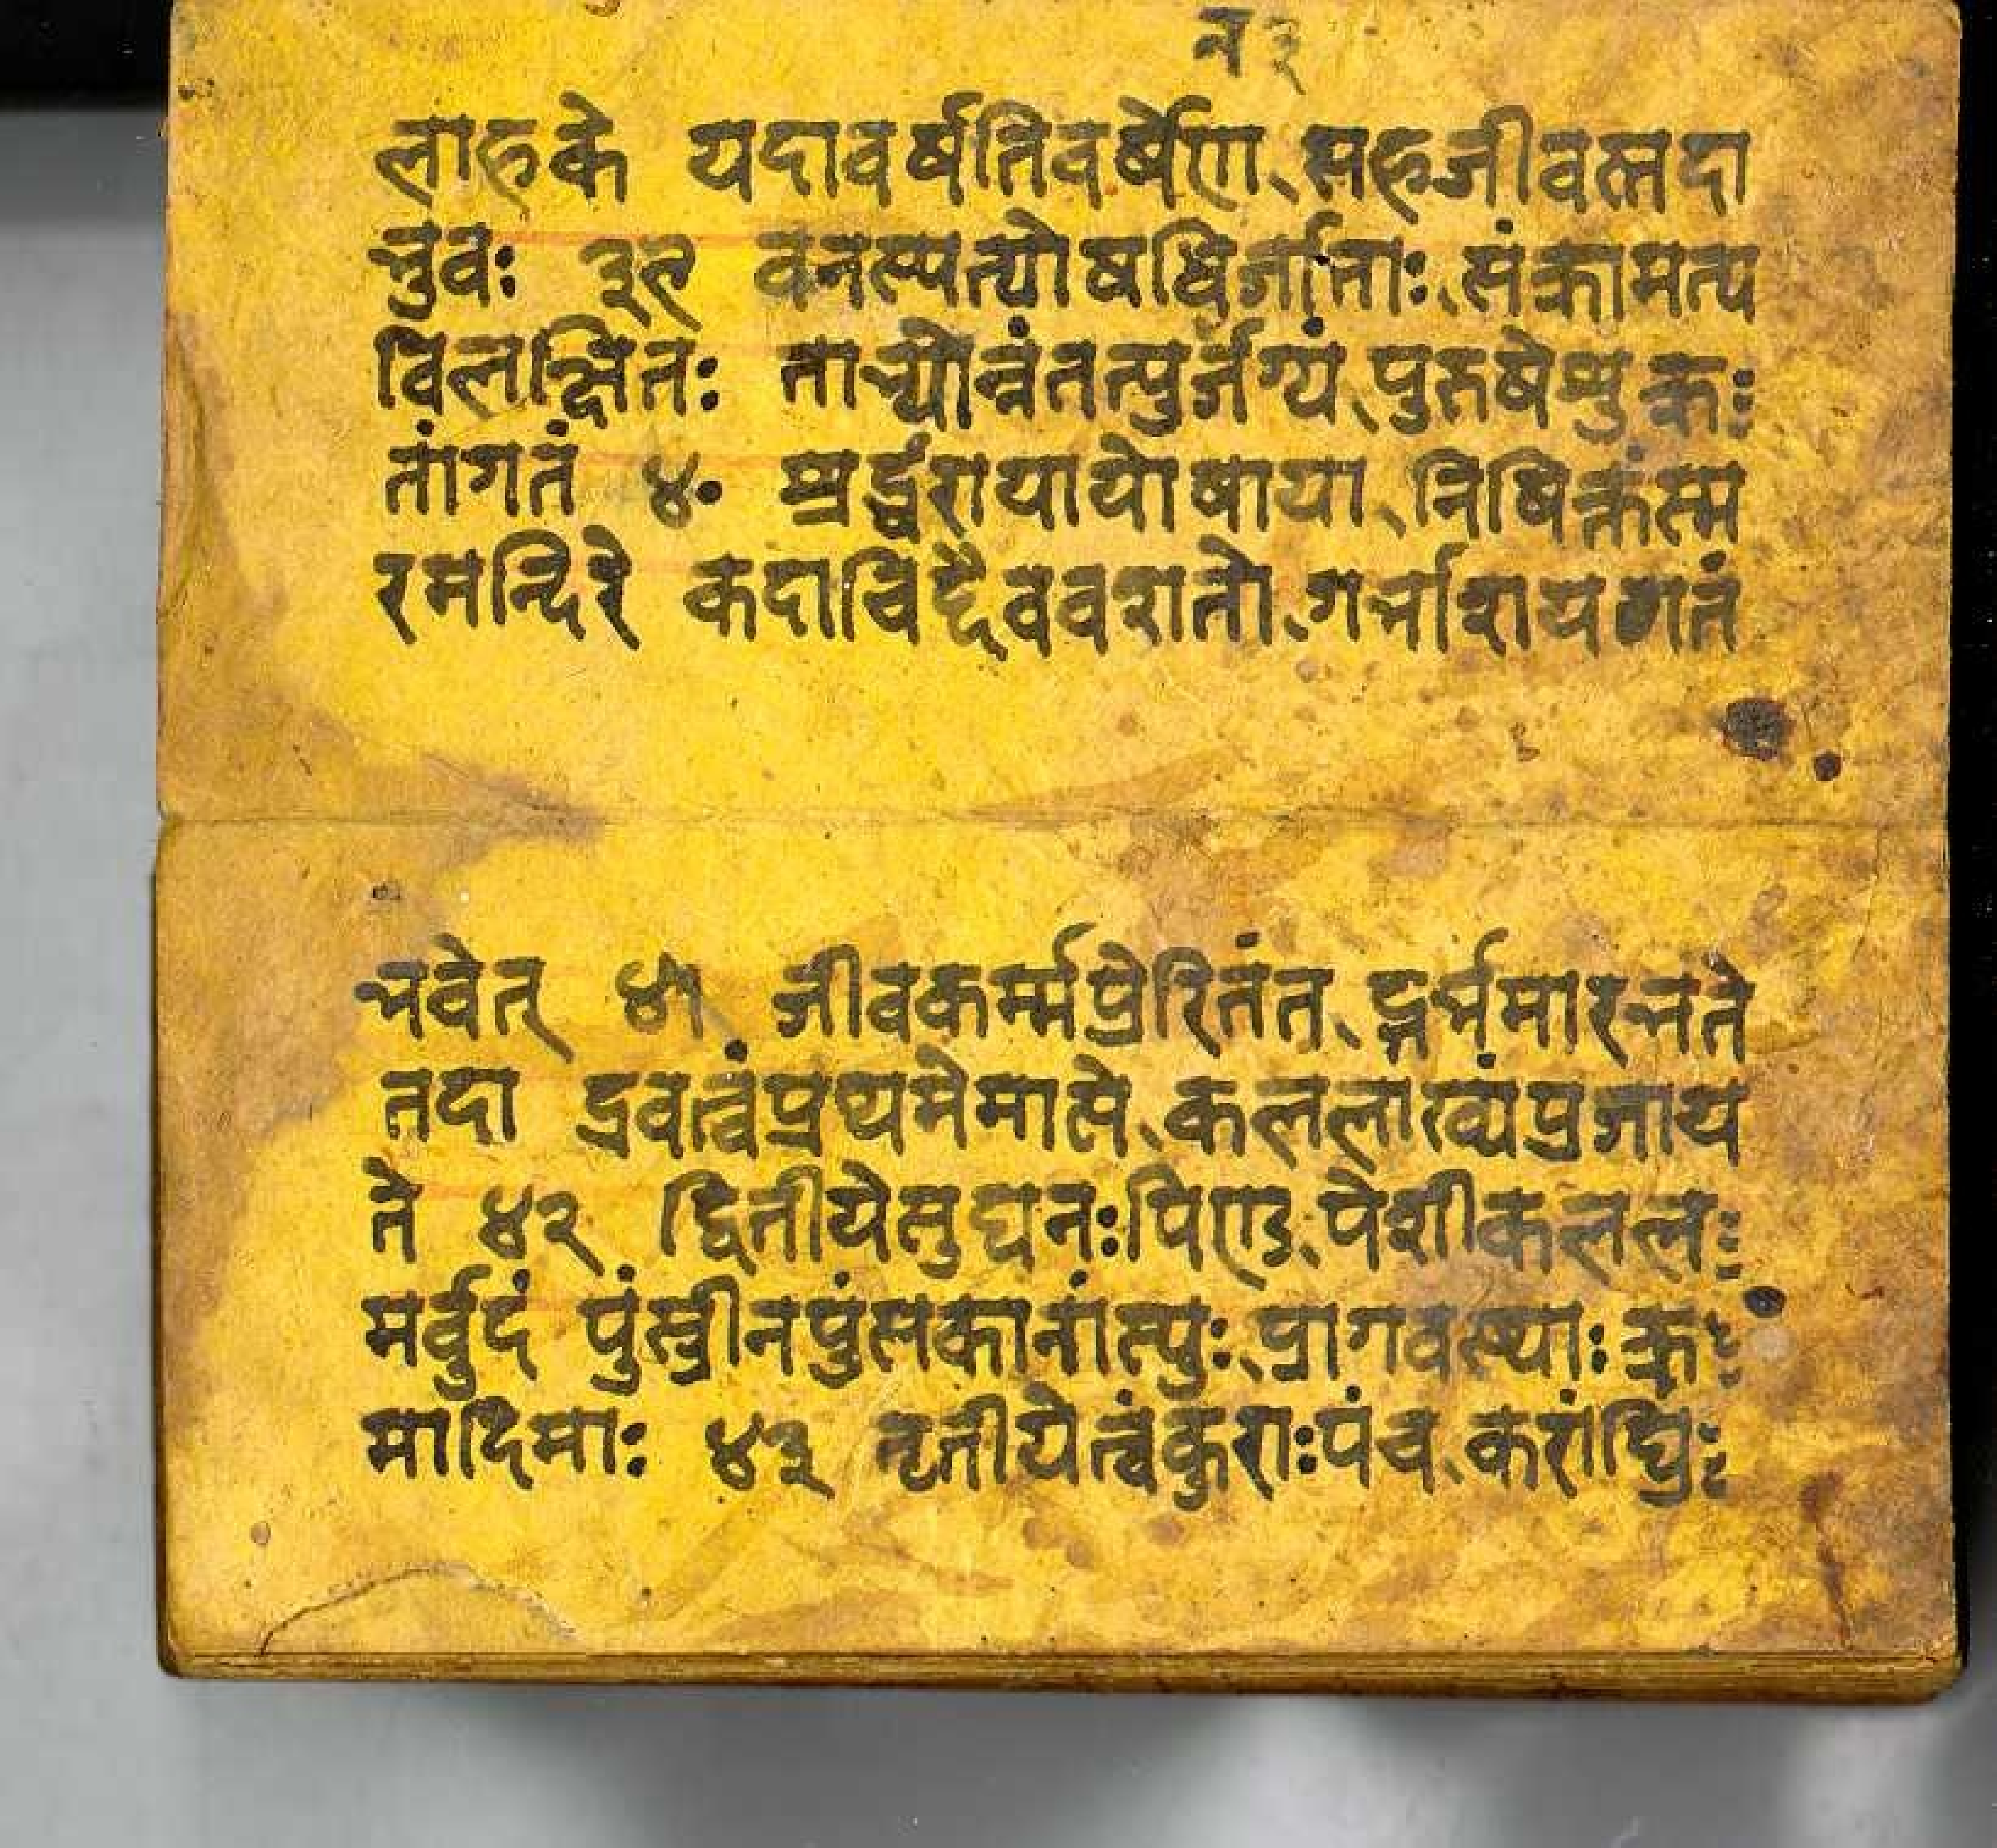 न३
लाहके यदावर्षतिवर्षेण सहजीवस्तदा
भुवः ३९ वनस्पत्योषधिर्जाताः संक्रामत्य
विलक्षितः ताभ्योन्नंतत्पुर्जग्धं पुरुषैर्भुक्तः
तांगतं ४० प्रवृद्धरायायोषाया निषिक्तंस्म
रमन्दिरे कदाचिद्दैववशतो गर्भाशयगतं
भवेत् ४१ जीवकर्म्मप्रेरितंत द्गर्भमारभते
तदा द्रवत्वंप्रथमेमासे कललाख्यंप्रजाय
ते ४२ द्वितीयेतुघनःपिण्ड पेशीकललः
मर्वुदं पुंस्त्रीनपुंसकानांस्युः प्रागवस्थाः क्रः
मादिमाः ४३ तृतीयेत्वंकुराःपंच करांघ्रिः